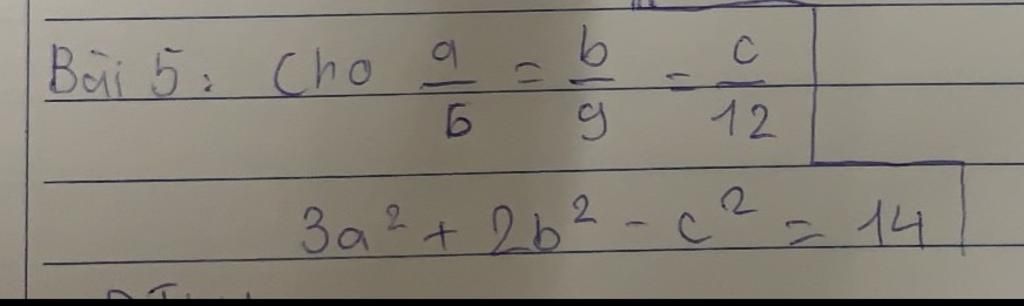 Bài 5: Cho a/6 = b/9 = c/12
3a² + 2b² - c² = 14